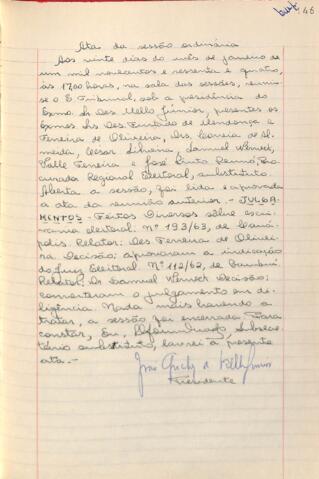 46
Ata da sessão ordinária
Aos vinte dias do mês de janeiro de
um mil novecentos e sessenta e quatro,
às 17,00 horas, na sala das sessões, reuniu-
se o E. Tribunal, sob a presidência do
Exmo. Sr. Des. Mello Júnior, presentes os
Exmos. Srs. Des. Furtado de Mendonça e
Ferreira de Oliveira, Drs. Correia de Al-
meida, Cesar Silveira, Samuel Werneck,
Valle Ferreira e José Pinto Renó, Pro-
curador Regional Eleitoral, substituto.
Aberta a sessão, foi lida e aprovada
a ata da reunião anterior. - JULGA-
MENTOS - Feitos Diversos sôbre escri-
vania eleitoral: nº 193/63, de
polis. Relator: Des. Ferreira de Olivei-
ra. Decisão: aprovaram a indicação
do Juiz Eleitoral. Nº 112/62, de Bambuí.
Relator, Dr. Samuel Werneck. Decisão:
converteram o julgamento em di-
ligência. Nada mais havendo a
tratar, a sessão foi encerrada. Para
constar, Eu, Subsecre-
tário substituto, lavrei a presente
ata. -
Presidente